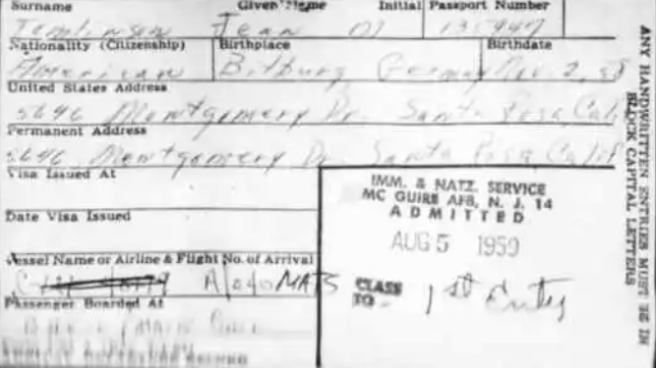 Surname Given Name Initial Passport Number
Tomlinson Jean M
Nationality (Citizenship) Birthplace Birthdate
American Bitburg Germany Nov. 2,
United States Address
5646 Montgomery Dr. Santa Rosa Cali
Permanent Address
5646 Montgomery Dr. Santa Rosa Calif
Visa Issued At
Date Visa Issued
Vessel Name or Airline & Flight No. of Arrival
MATS
Passenger Boarded At
IMM. & NATZ. SERVICE
MC GUIRE AFB, N. J. 14
ADMITTED
AUG 5 1959
CLASS 1st Entry
TO -
ANY HANDWRITTEN ENTRIES MUST BE IN
BLOCK CAPITAL LETTERS